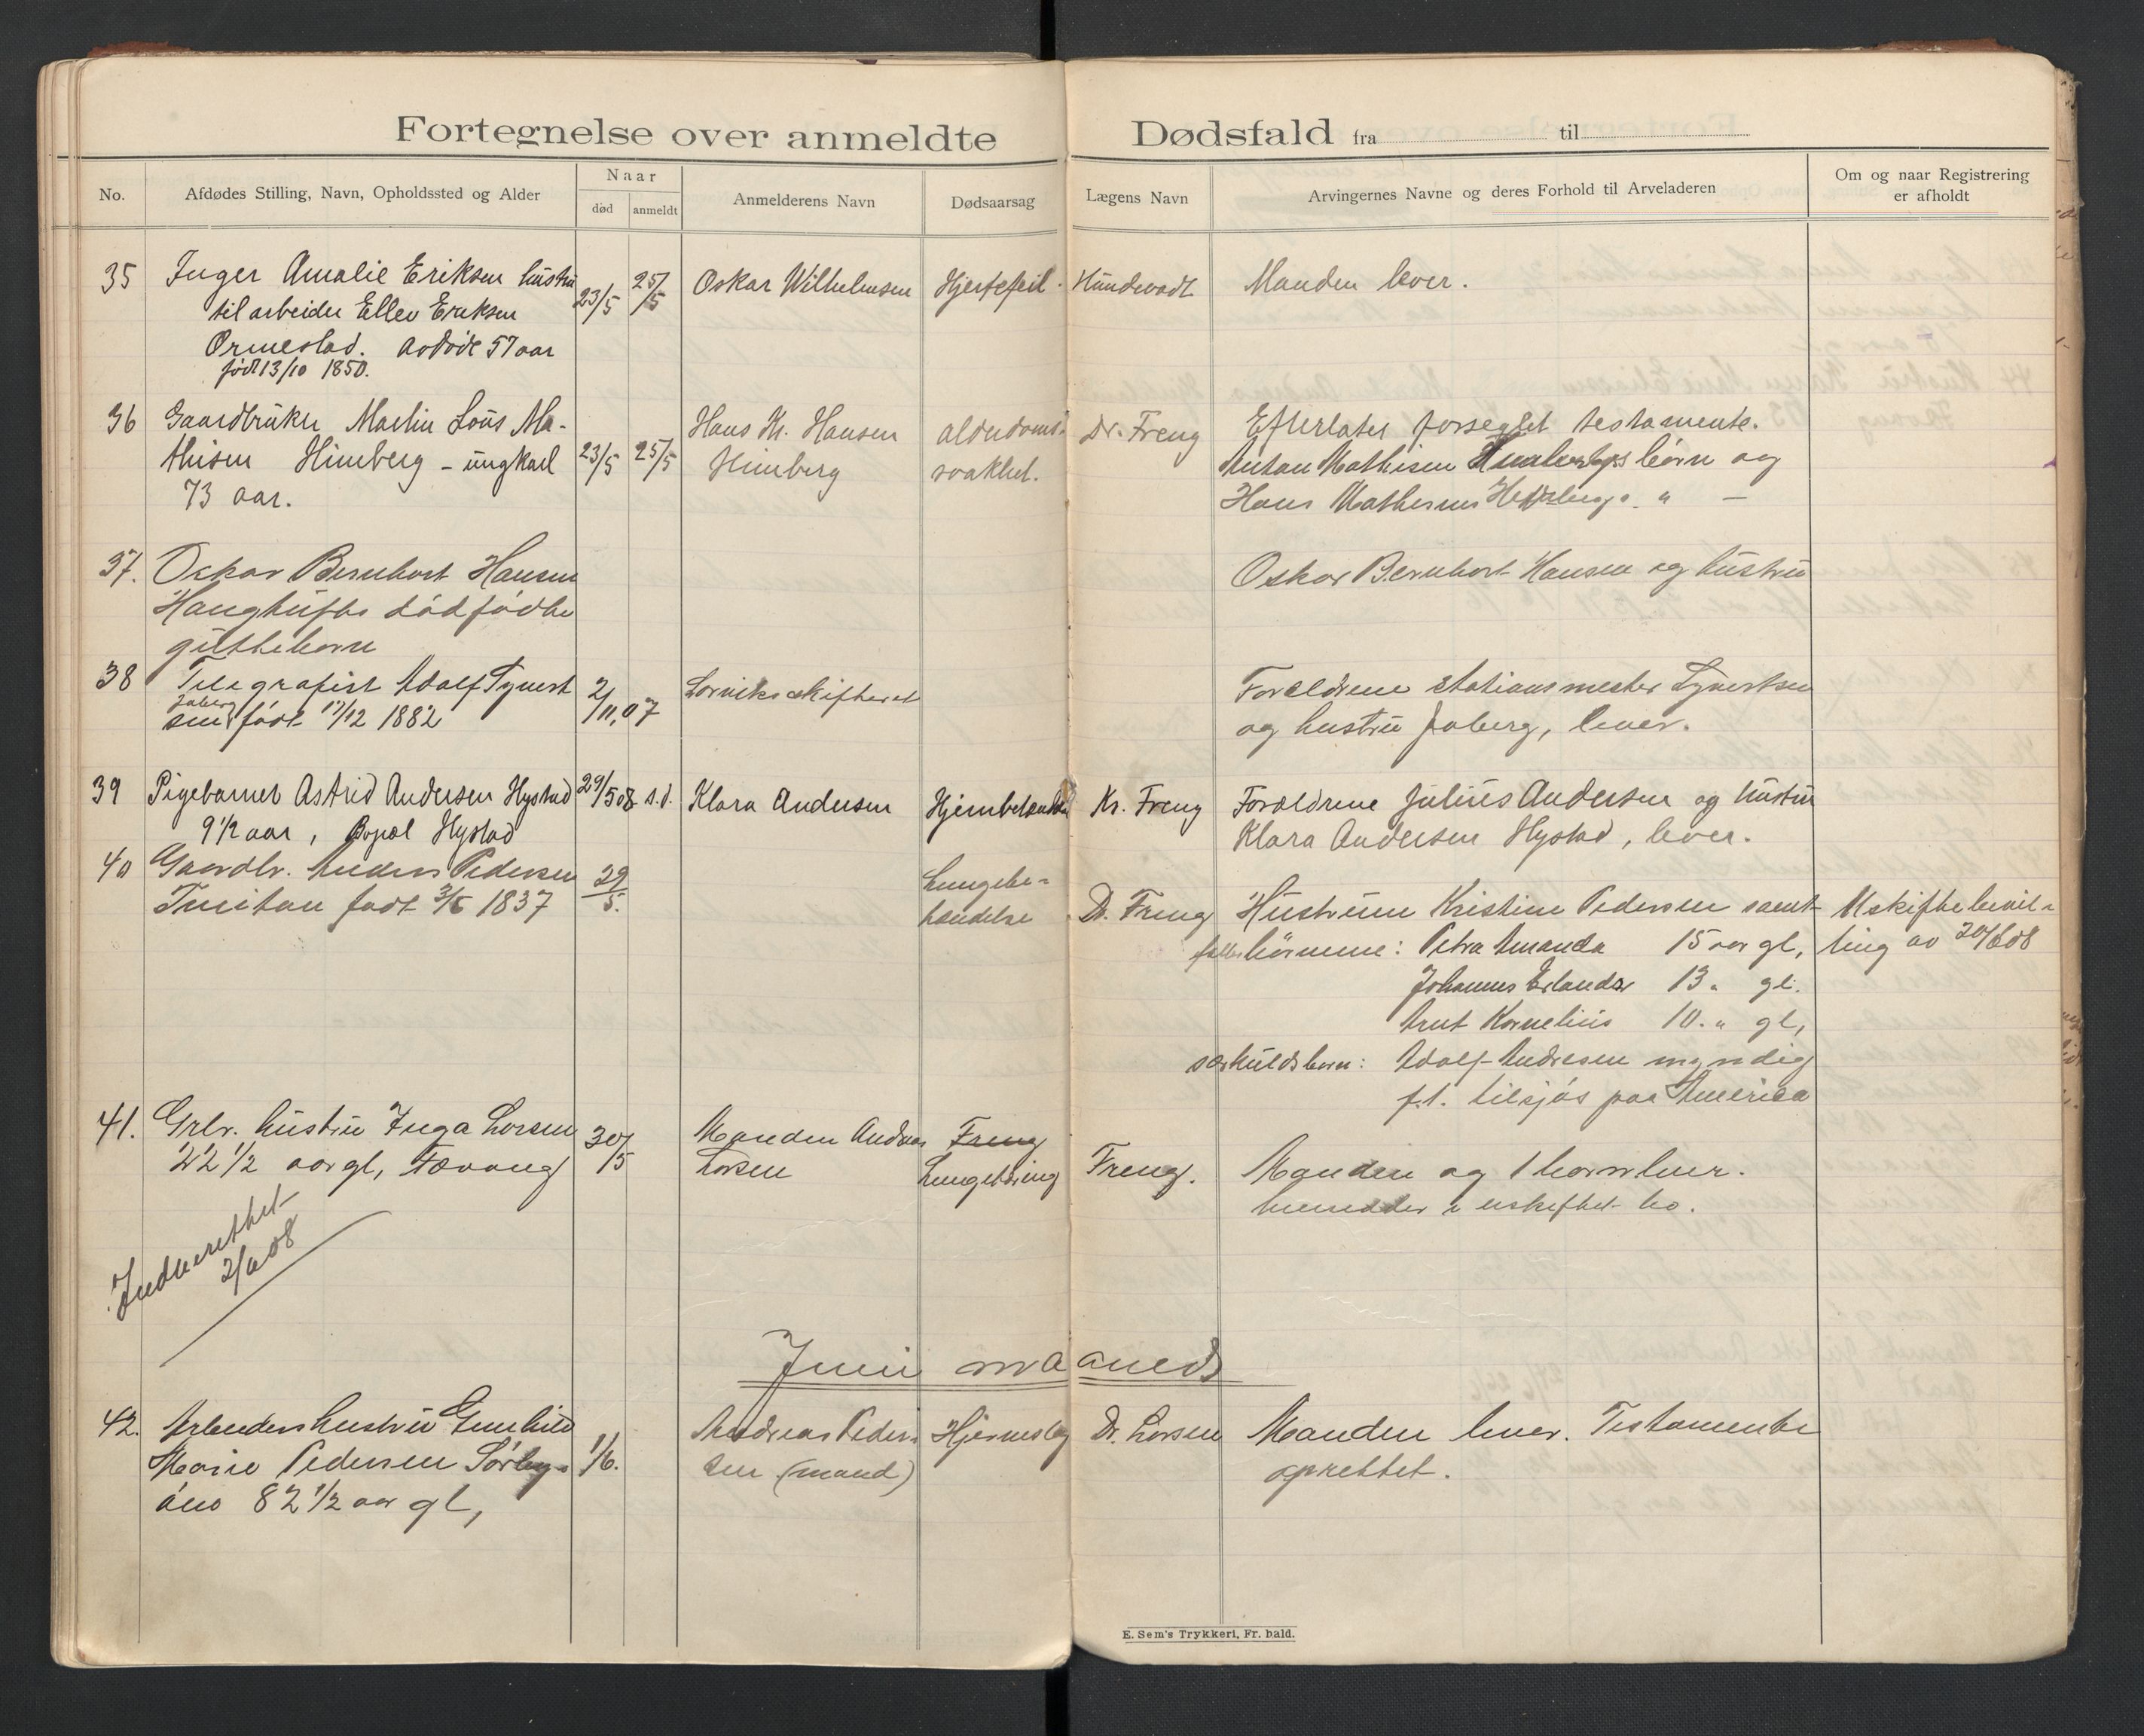 Fortegnelse over anmeldte Dødsfald fra til
No.
Afdødes Stilling, Navn, Opholdssted og Alder
Naar
død
anmeldt
Anmelderens Navn
Dødsaarsag
Lægens Navn
Arvingernes Navne og deres Forhold til Arveladeren
Om og naar Registrering
er afholdt
35 Inger Amalie Eriksen hustru 23/5 25/5 Oskar Wilhelmsen Hjertefeil. Hundevadt Manden lever.
til arbeider Ellev Eriksen
Ormestad. Avdøde 57 aar
født 13/10 1850.
36 Gaardbruker Martin Lous Ma- 23/5 25/5 Hans Kr. Hansen alderdoms- Dr. Freng Efterlater forseglet testamente.
thisen Himberg - ungkarl Himberg svakhet. Antan Mathisen børn og
73 aar. Hans " —
37. Oskar Bernhart Hansen Oskar Bernhart Hansen og hustru
Haughufts dødfødte
guttebarn
38 Telegrafist Adolf Syvert 2/11,07 Larviks skifteret Forældrene stationsmester Syvertsen
sen Jaberg født 17/12 1882 og hustru Jaberg, lever.
39 Pigebarnet Astrid Andersen Hystad 29/5 08 s.d. Klara Andersen Hjernebetændelse Kr. Freng Forældrene Julius Andersen og hustru
9 1/2 aar, Bopæl Hystad Klara Andersen Hystad, lever.
40 Gaardbr. Anders Pedersen 29/5. Lungebe- Dr. Freng Hustruen Kristine Pedersen samt Uskiftebevil-
født 3/5 1837 tændelse børnene: Petra Amanda 15 aar gl, ling av 20/6 08
Johannes Erlander 13 " gl.
Arnt Kornelius 10. " gl,
særkuldsbarn: Adolf Andresen myndig
f.t. tilsjøs paa America
41. Grbr. hustru Inga Larsen 30/5 Manden Andreas Freng Freng. Manden og 1 barn lever.
22 1/2 aar gl, Tævang Larsen Lungebdring hensidder i uskiftet bo.
Indberettet
2/6 08
Juni maaned
42. Arbeiders hustru Gunhild 1/6. Andreas Peder- Hjerneslag Dr. Larsen Manden lever. Testamente
Marie Pedersen Sørby- sen (mand) oprettet.
82 1/2 aar gl,
E. Sem's Trykkeri, Fr. hald.